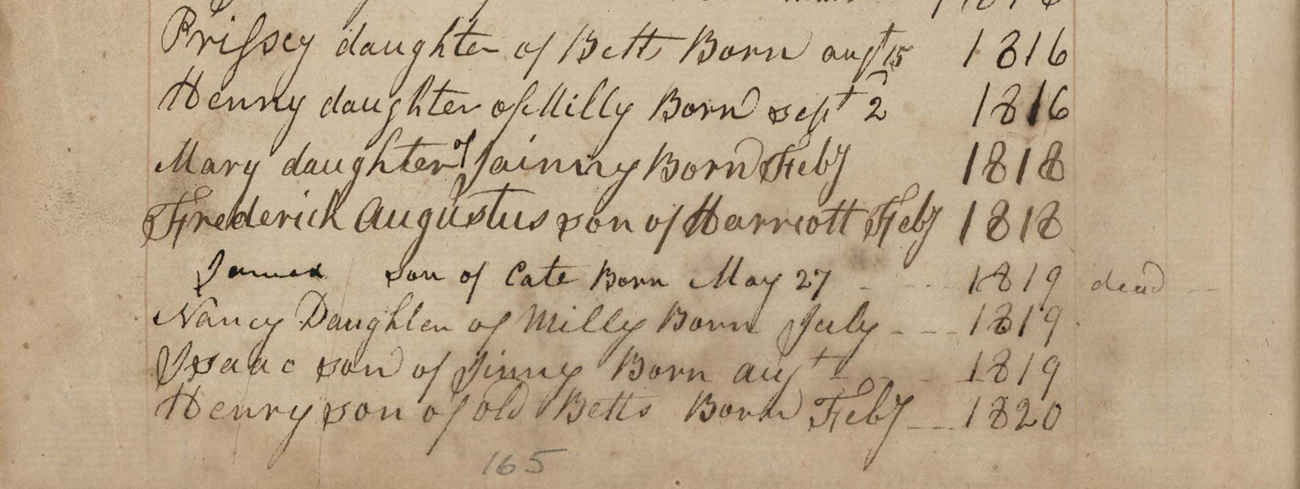 Prissey daughter of Betts Born augt 15 1816
Henny daughter of Milly Born sept 2 1816
Mary daughter of Jainny Born Feby 1818
Frederick Augustus son of Harriott Feby 1818
James son of Cate Born May 27 1819 dead
Nancy Daughter of Milly Born July 1819
Isaac son of Jinny Born augt 1819
Henry son of old Betts Born Feby 1820
165